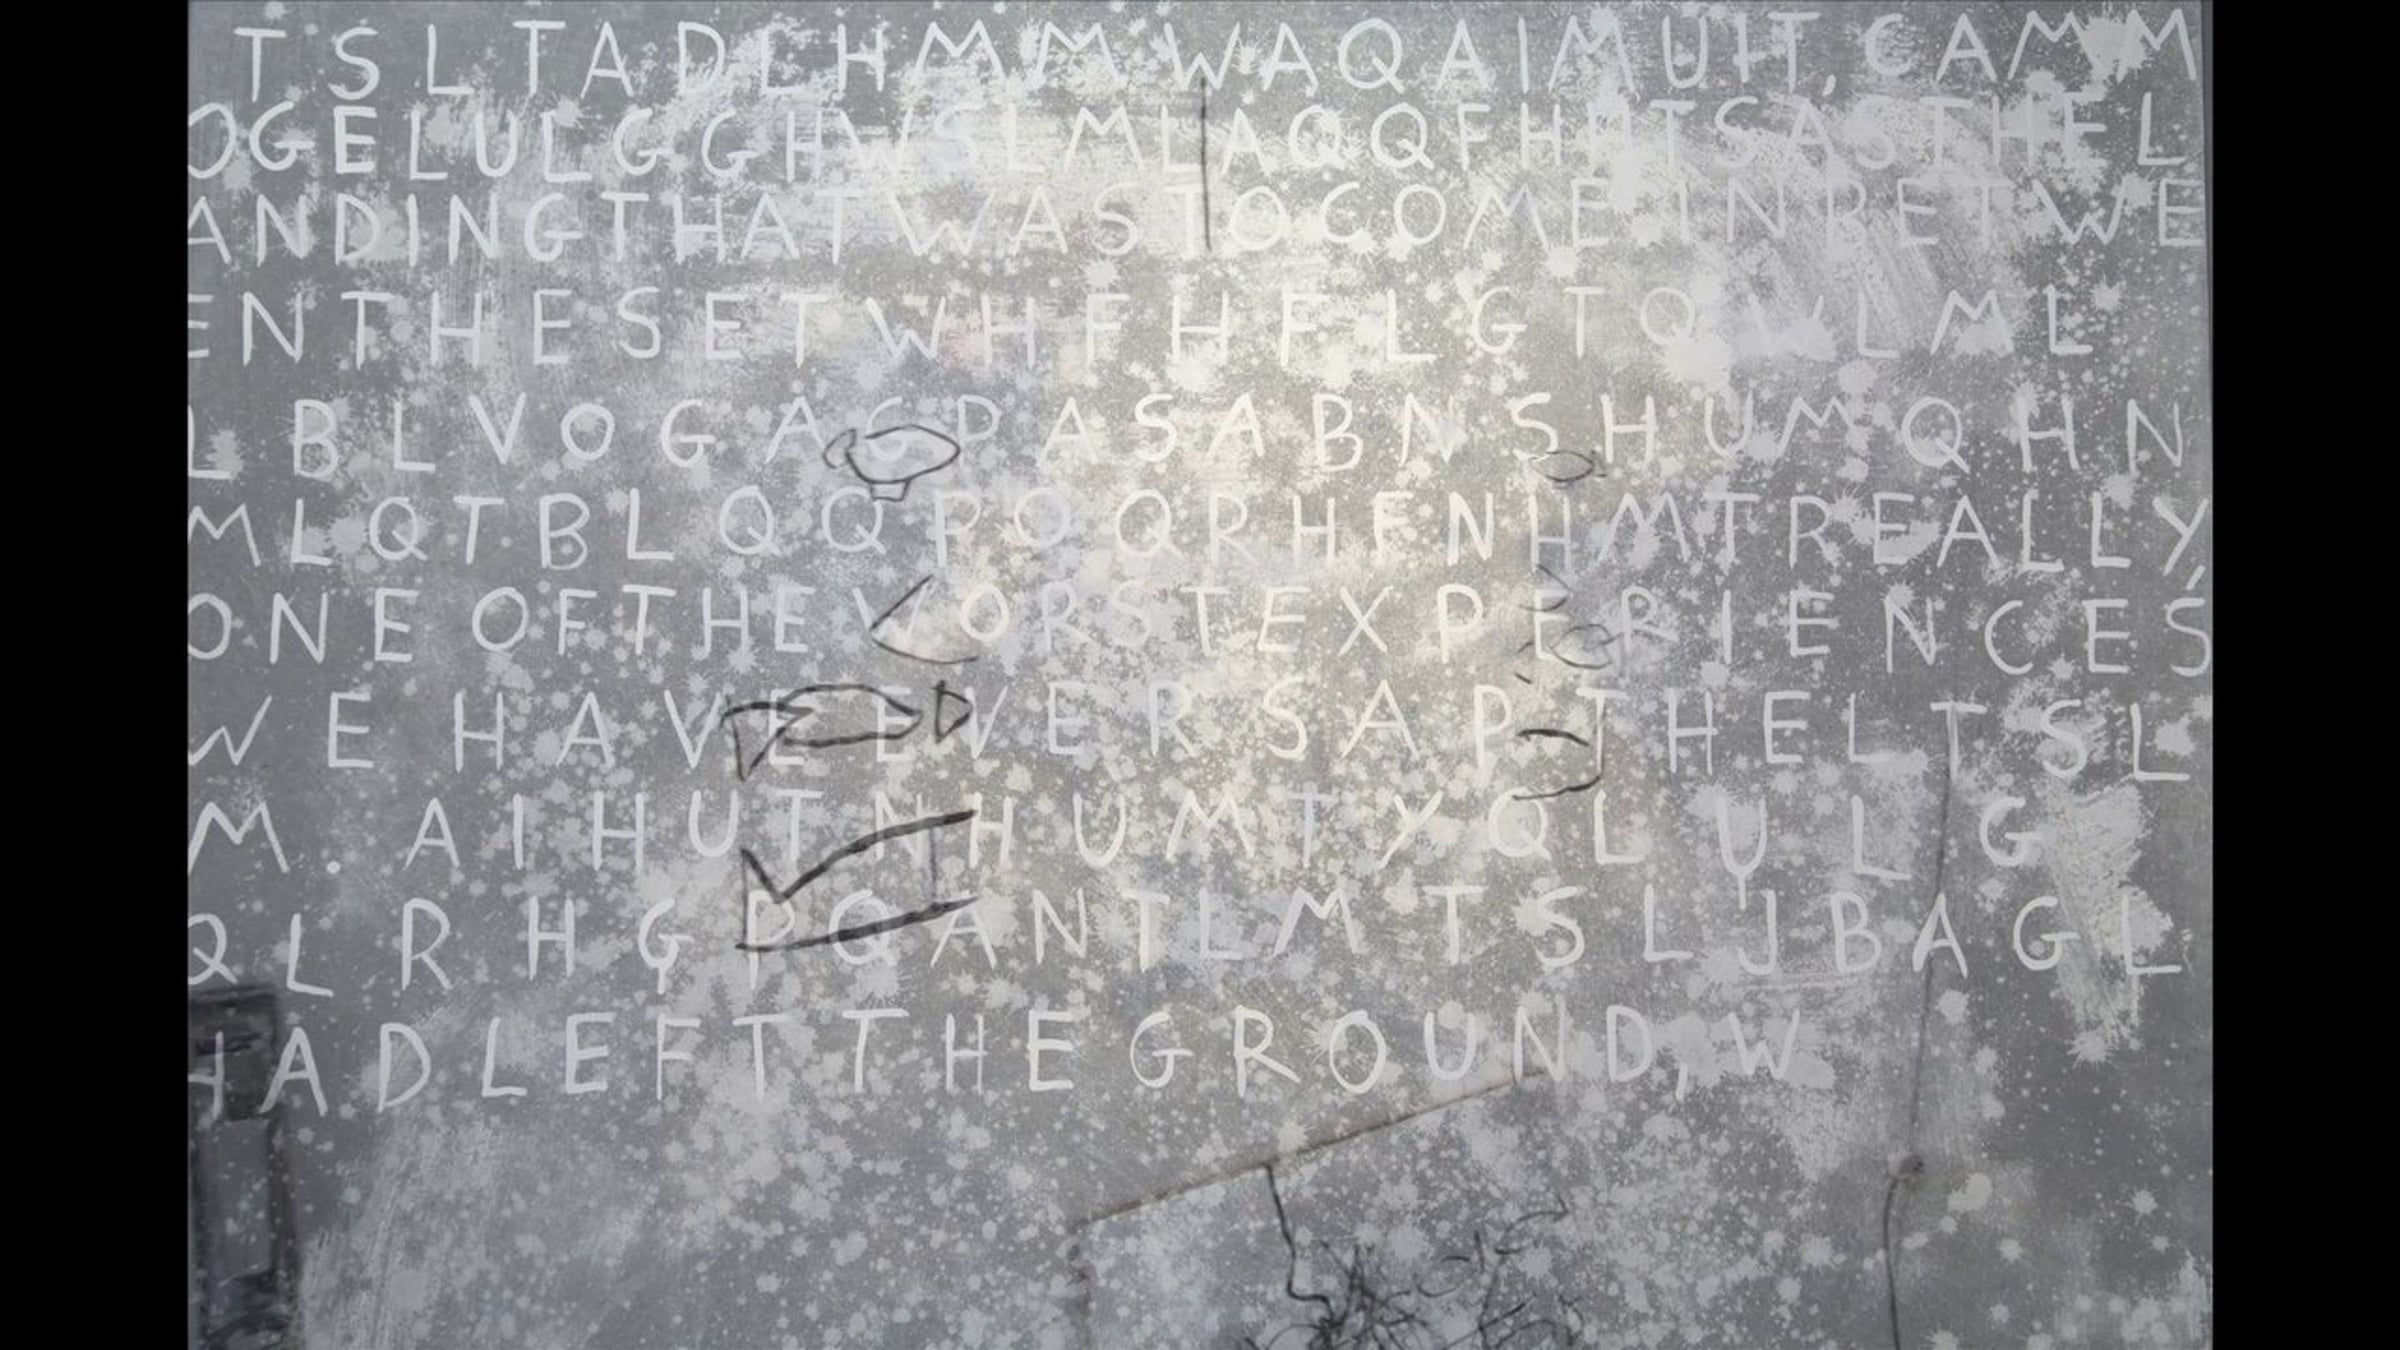 TSLTADLHMMWAQAIMUIT, CAMMM
OGELULGGHWSLMLAQQFHUTSASTHEL
ANDINGTHATWASTOCOMEINBETWE
ENTHESETWHFHFLGTQWLML
LBLVOGAGPASABNSHUMQHN
MLQTBLQQPOQRHFNHMTREALLY,
ONE OFTHEWORSTEXPERIENCES
WEHAVEEVERSAPTHELTSL
M. AIHUTNHUMTYQLULG
QLRHGPQANTLMTSLJBAGL
HADLEFTTHEGROUND, W